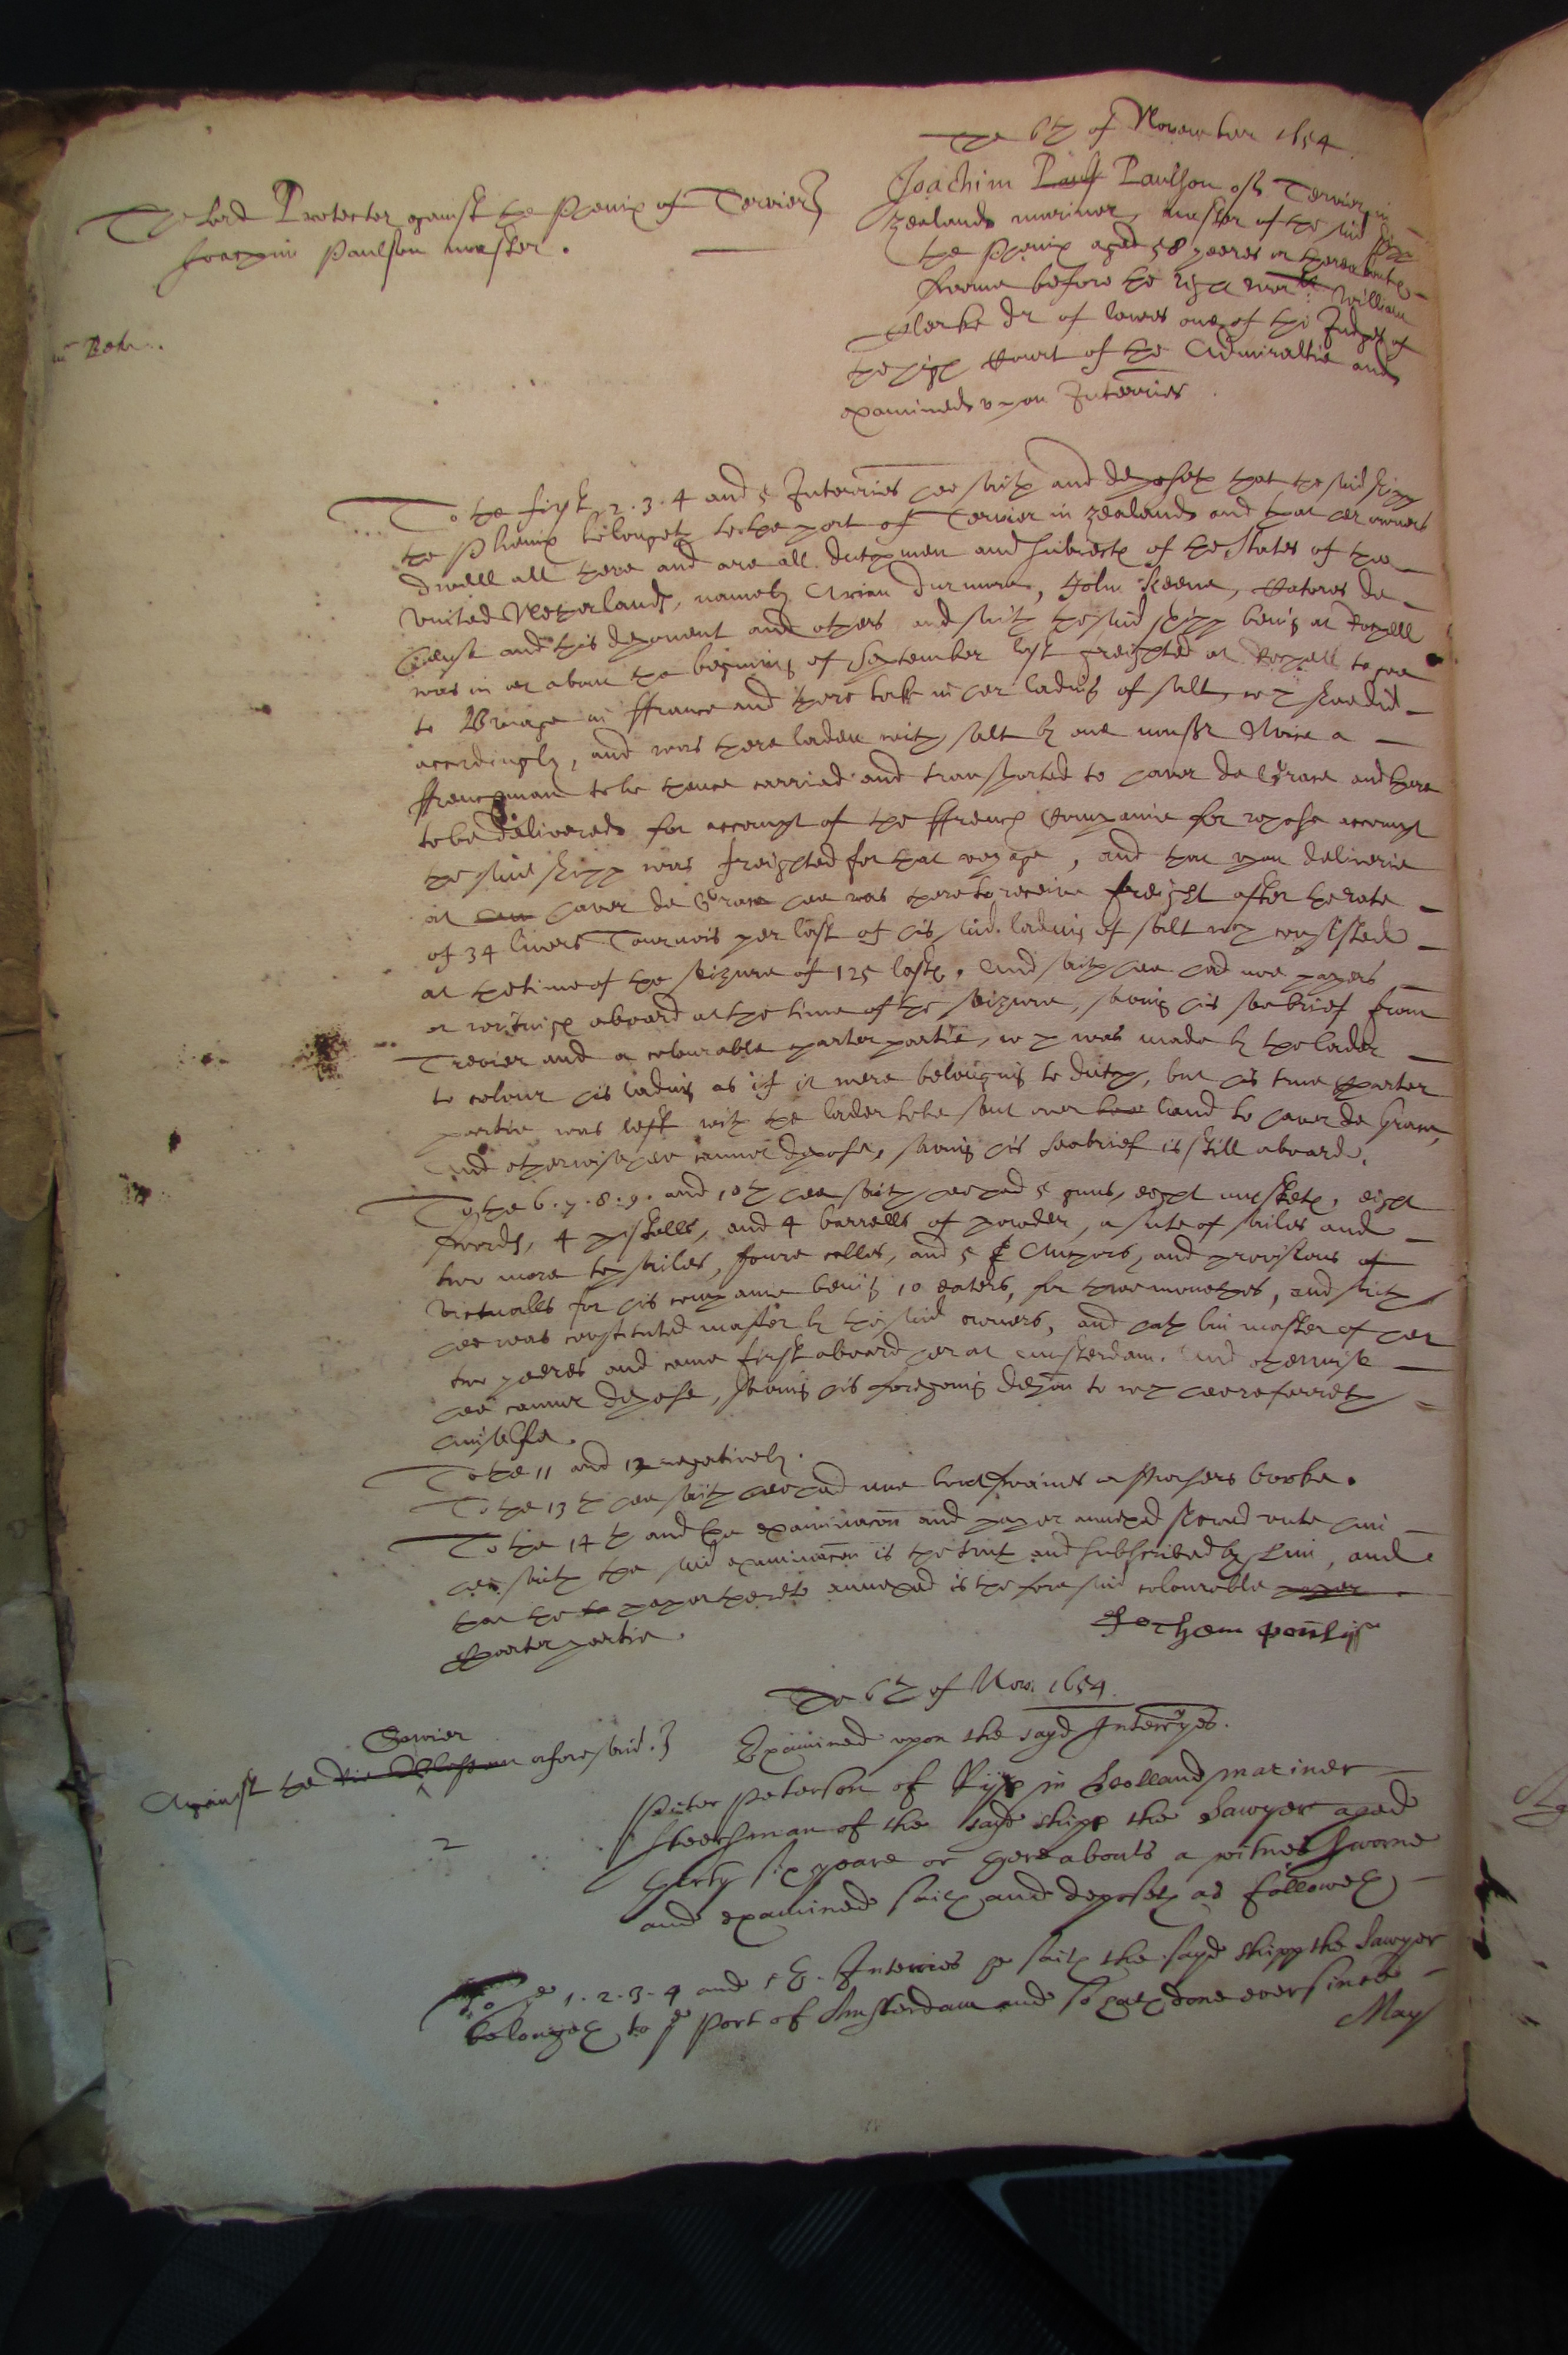 The 6th of November 1654.
The Lord Protector against the Phenix of Tervier
Joachim Paulson master.
Joachim Pauls Paulson of Tervier in
Zealand mariner, master of the said shipp
the Phenix aged 58 yeeres or thereabouts
sworne before the right worll: William
Clerke dr of lawes one of the Judges of
the high Court of the Admiraltie and
examined upon Interries.
To the first, 2. 3. 4 and 5 Interries hee saith and deposeth that the said shipp
the Phenix belongeth to the port of Tervier in Zealand and that her owners
dwell all there and are all dutchmen and subiects of the States of the
United Netherlands, namely Arian Durmore, John Keene, de
and this deponent and others and saith the said shipp being at
was in or about the beginning of September last freighted at to goe
to Bruage in ffrance and there take in her lading of salt, wch shee did
accordingly, and was there laden with salt by one monsr a
ffrenchman to be thence carried and transported to haver de Grace and there
to be delivered for accompt of the ffrench Companie for whose accompt
the said shipp was freighted for that voyage, and that upon deliverie
at haver de Grace hee was there to receive freight after the rate
of 34 livers Tournois per last of his said lading of salt wch consisted
at the time of the seizure of 125 lasts. And saith hee had noe papers
or writings aboard at the time of the seizure, saving his seabrief from
Trevier and a colourable charter partie, wch was made by the lader
to colour his lading as if it were belonging to dutch, but his true charter
partie was left with the lader to be sent over land to haver de Grace,
And otherwise hee cannot depose, saving his seabrief is still aboard.
To the 6. 7. 8. 9. and 10th hee saith hee had 5 guns, eight muskets, eight
swords, 4 pistolls, and 4 barrells of powder, a sute of sailes and
two more topsailes, foure cables, and 5 Anchors, and provisions of
victualls for his companie being 10 eaters, for two monethes, and saith
hee was constituted master by the said owners, and hath bin master of her
two yeeres and came first aboard her at Amsterdam. And otherwise
hee cannot depose, saving his foregoing depon to wch hee referreth
himselfe.
To the 11 and 12 negatively.
To the 13th hee saith hee had noe or Pursers booke.
To the 14th and the examinacon and paper annexed shewed unto him
hee saith the said examinacon is the truth and subscribed by him, and
that the to paper thereto annexed is the foresaid colourable paper
charter partie.
The 6th of Nov. 1654.
Sawier
Against the aforesaid.
Examined upon the sayd Interryes.
2
Peiter Peterson of Ryp in Holland mariner
Steersman of the sayd shipp the Sawyer aged
thirty six yeare or thereabouts a witnes sworne
and examined saith and deposeth as followeth
To ye 1. 2. 3. 4 and 5th. Interries he saith the sayd shipp the Sawyer
belongeth to ye Port of Amsterdam and so hath done ever since
May